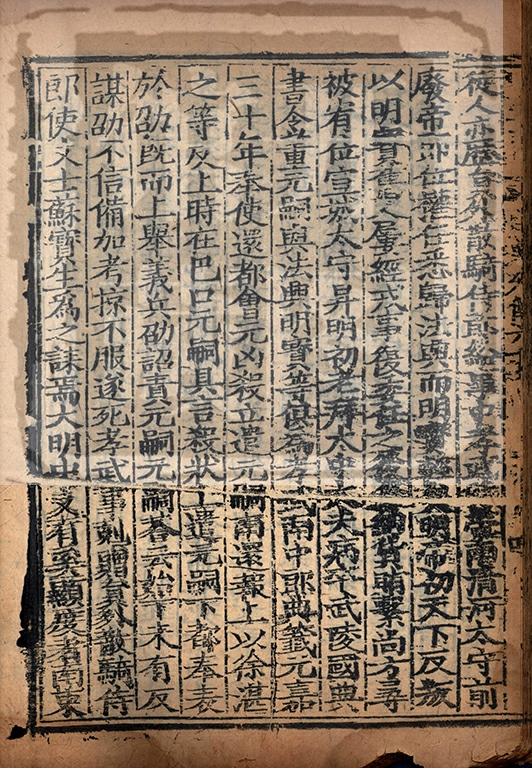 徒人亦歷員外散騎侍郎給事中孝武南清河太守前
廢帝即位權任悉歸法興而明寶明帝初天下反叛
以明寶舊人屢經戎事復委任之後納貨賄繫尚方尋
被宥位宣城太守昇明初老拜太中大夫病卒武陵國典
書令董元嗣與法興明寶等俱爲孝武南中郎典籤元嘉
三十年奉使還都會元凶殺立遣元嗣南還報上以徐湛
之等反上時在巴口元嗣具言殺狀上遣元嗣下都奉表
於劭旣而上舉義兵劭詔責元嗣元嗣荅云始下未有反
謀劭不信備加考掠不服遂死孝武事剋贈員外散騎侍
郎使文士蘇寶生爲之誄焉大明中又有奚顯度者南東